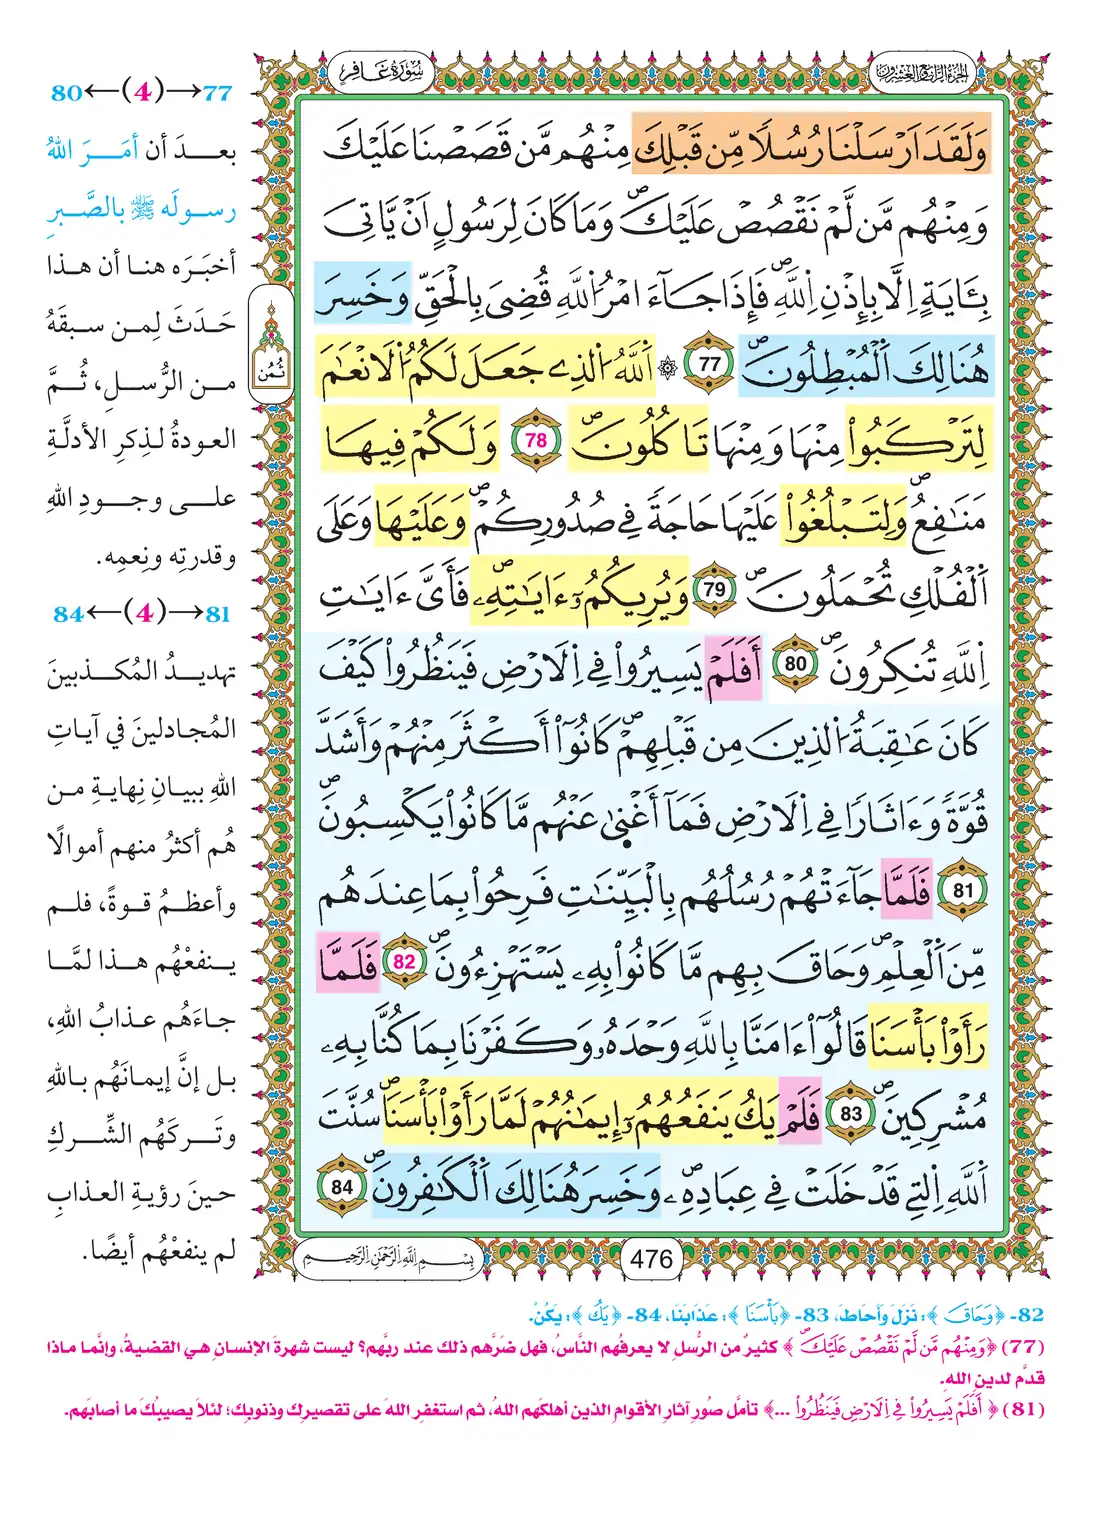 الجزء الرابع والعشرون
سورة غافر
وَلَقَدَ اَرْسَلْنَا رُسُلًا مِّن قَبْلِكَ مِنْهُم مَّن قَصَصْنَا عَلَيْكَ
وَمِنْهُم مَّن لَّمْ نَقْصُصْ عَلَيْكَ وَمَا كَانَ لِرَسُولٍ اَنْ يَّاتِيَ
بِـَٔايَةٍ اِلَّا بِإِذْنِ اِللَّهِ فَإِذَا جَآءَ امْرُ اُللَّهِ قُضِيَ بِالْحَقِّ وَخَسِرَ
هُنَالِكَ اَلْمُبْطِلُونَ 77 ۞ اَللَّهُ اُلذِے جَعَلَ لَكُمُ اُلَانْعَٰمَ
لِتَرْكَبُواْ مِنْهَا وَمِنْهَا تَاكُلُونَ 78 وَلَكُمْ فِيهَا
مَنَٰفِعُ وَلِتَبْلُغُواْ عَلَيْهَا حَاجَةً فِے صُدُورِكُمْ وَعَلَيْهَا وَعَلَى
اَلْفُلْكِ تُحْمَلُونَ 79 وَيُرِيكُمُۥٓ ءَايَٰتِهِۦ فَأَىَّ ءَايَٰتِ
اِللَّهِ تُنكِرُونَ 80 أَفَلَمْ يَسِيرُواْ فِے اِلَارْضِ فَيَنظُرُواْ كَيْفَ
كَانَ عَٰقِبَةُ اُلذِينَ مِن قَبْلِهِمْ كَانُوٓاْ أَكْثَرَ مِنْهُمْ وَأَشَدَّ
قُوَّةً وَءَاثَارًا فِے اِلَارْضِ فَمَآ أَغْنۭىٰ عَنْهُم مَّا كَانُواْ يَكْسِبُونَ
81 فَلَمَّا جَآءَتْهُمْ رُسُلُهُم بِالْبَيِّنَٰتِ فَرِحُواْ بِمَا عِندَهُم
مِّنَ اَلْعِلْمِ وَحَاقَ بِهِم مَّا كَانُواْ بِهِۦ يَسْتَهْزِءُونَ 82 فَلَمَّا
رَأَوْاْ بَأْسَنَا قَالُوٓاْ ءَامَنَّا بِاللَّهِ وَحْدَهُۥ وَكَفَرْنَا بِمَا كُنَّا بِهِۦ
مُشْرِكِينَ 83 فَلَمْ يَكُ يَنفَعُهُمُۥٓ إِيمَٰنُهُمْ لَمَّا رَأَوْاْ بَأْسَنَا سُنَّتَ
اَللَّهِ اِلتِے قَدْ خَلَتْ فِے عِبَادِهِۦ وَخَسِرَ هُنَالِكَ اَلْكَٰفِرُونَ 84
476
بسم الله الرحمن الرحيم
ثُمُن
77→(4)←80
بعدَ أن أمَرَ اللهُ
رسولَه ﷺ بالصَّبرِ
أخبَرَه هنا أن هذا
حَدَثَ لِمن سبقَهُ
من الرُّسلِ، ثُمَّ
العودةُ لذِكرِ الأدلَّةِ
على وجودِ اللهِ
وقدرتِه ونِعمِه.
81→(4)←84
تهديدُ المُكذبينَ
المُجادلينَ في آياتِ
اللهِ ببيانِ نِهايةِ من
هُم أكثرُ منهم أموالًا
وأعظمُ قوةً، فلم
ينفعْهُم هذا لمَّا
جاءَهُم عذابُ اللهِ،
بل إنَّ إيمانَهُم باللهِ
وتَركَهُم الشِّركِ
حينَ رؤيةِ العذابِ
لم ينفعْهُم أيضًا.
82- ﴿وَحَاقَ﴾: نَزَلَ وَأَحَاطَ، 83- ﴿بَأْسَنَا﴾: عَذَابَنَا، 84- ﴿يَكُ﴾: يَكُنْ.
(77) ﴿وَمِنْهُم مَّن لَّمْ نَقْصُصْ عَلَيْكَ﴾ كثيرٌ من الرُّسلِ لا يعرفُهم النَّاسُ، فهل ضَرَّهم ذلك عند ربِّهم؟ ليست شهرةَ الإنسانِ هي القضيةُ، وإنَّما ماذا
قدَّم لدينِ الله.
(81) ﴿أَفَلَمْ يَسِيرُواْ فِے اِلَارْضِ فَيَنظُرُواْ ...﴾ تأمَّل صُورِ آثارِ الأقوامِ الذين أهلكَهم اللهُ، ثم استغفرِ اللهَ على تقصيرِك وذنوبِك؛ لئلاَ يصيبُكَ ما أصابَهم.